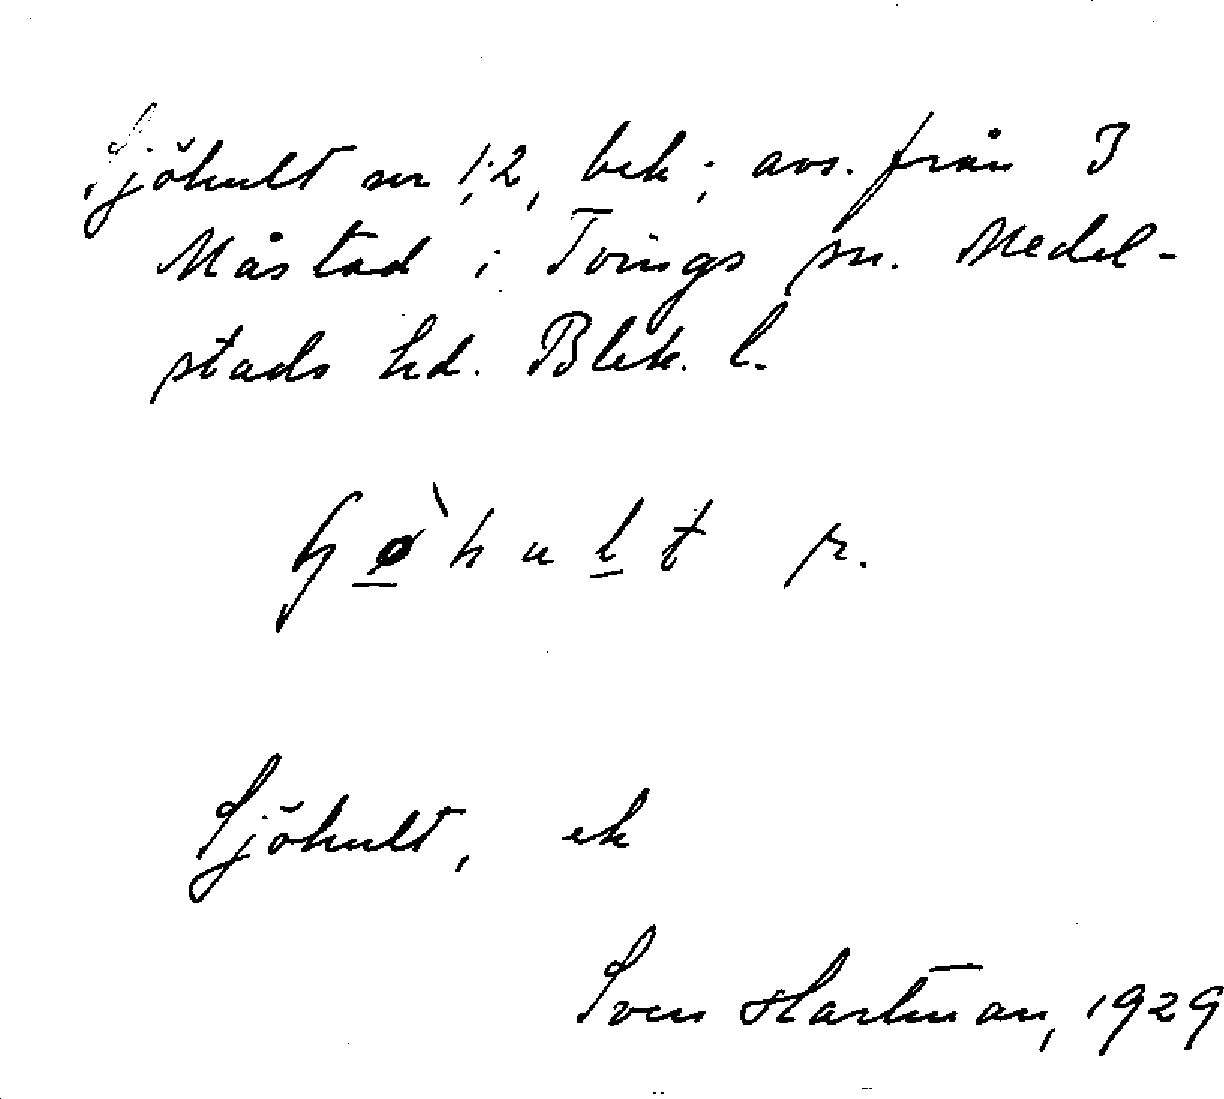 Sjöhult nr 1:2, bek; avs. från 3
Måstad i Tvings sn. Medel-
stads hd. Blek. l.
ɧø̀hult r.
Sjöhult, ek
Sven Hartman, 1929